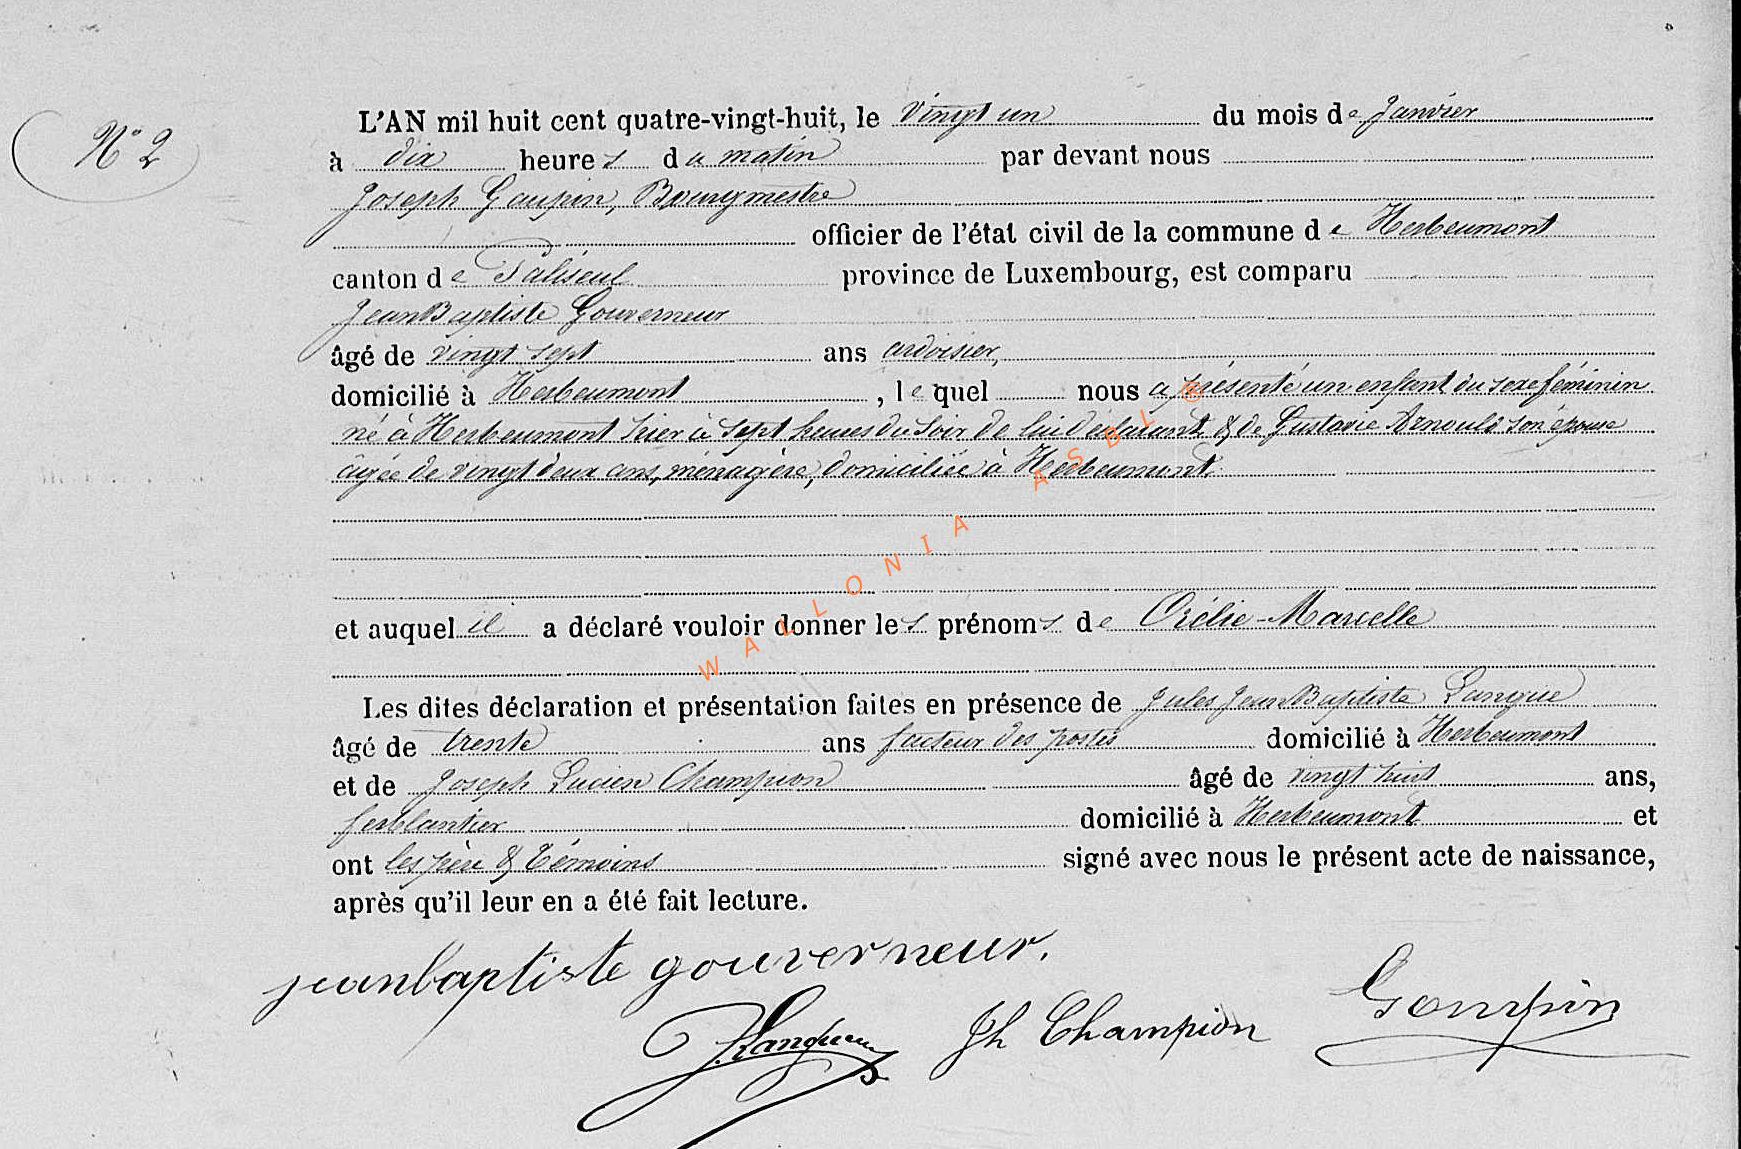 N° 2
L'AN mil huit cent quatre-vingt-huit, le vingt un du mois de Janvier
à dix heures du matin par devant nous
Joseph Goupin, Bourgmestre
officier de l'état civil de la commune de Herbeumont
canton de Paliseul province de Luxembourg, est comparu
Jean Baptiste Gouverneur
âgé de vingt sept ans ardoisier,
domicilié à Herbeumont, lequel nous a présenté un enfant du sexe féminin
né à Herbeumont hier à sept heures du soir de lui déclarant & de Gustavie Arnould son épouse
âgée de vingt deux ans, ménagère, domiciliée à Herbeumont.
et auquel il a déclaré vouloir donner les prénoms de Orélie-Marcelle
Les dites déclaration et présentation faites en présence de Jules Jean Baptiste
âgé de trente ans facteur des postes domicilié à Herbeumont
et de Joseph Lucien Champion âgé de vingt huit ans,
ferblantier domicilié à Herbeumont et
ont les père & témoins signé avec nous le présent acte de naissance,
après qu'il leur en a été fait lecture.
jeanbaptiste gouverneur.
Jh Champion Goupin
WALLONIA ASBL ®